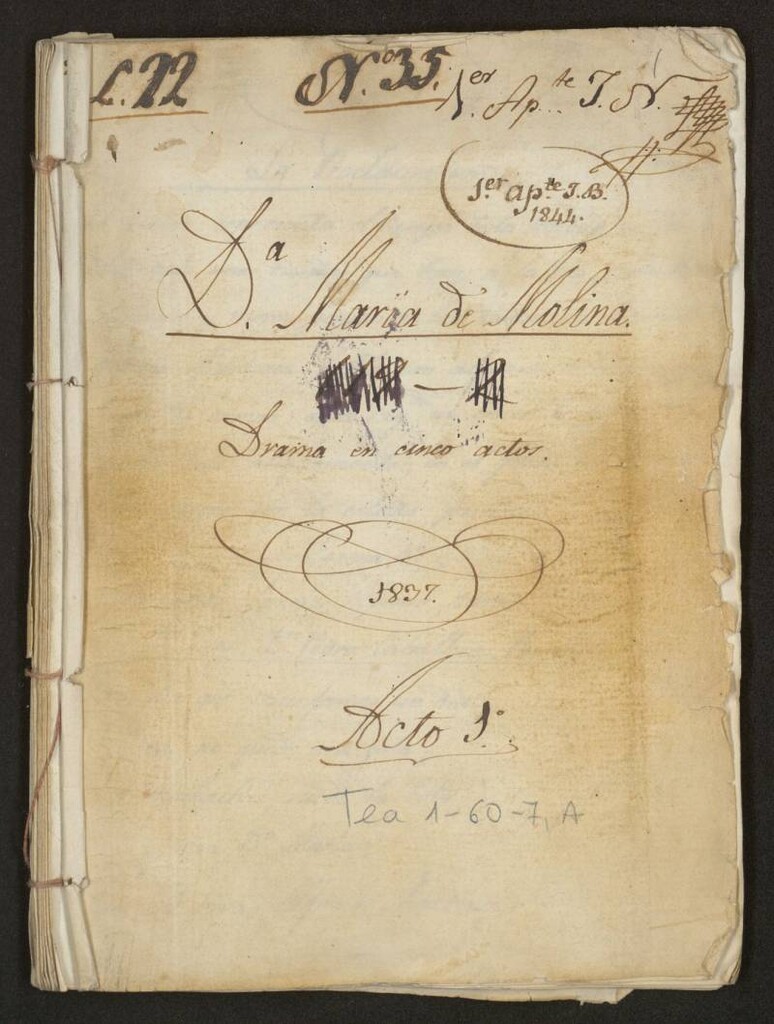 L. 22 Nº 35. 1.er Ap.te J. N.
1.er ap.te J.B.
1844.
D.ª María de Molina.
Drama en cinco actos.
1837.
Acto 1º
Tea 1-60-7, A